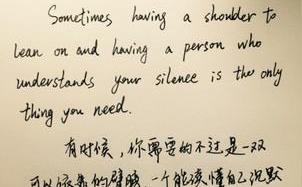 Sometimes having a shoulder to
lean on and having a person who
understands your silence is the only
thing you need.
有时候，你需要的不过是一双
可以依靠的臂膀，一个能读懂自己沉默